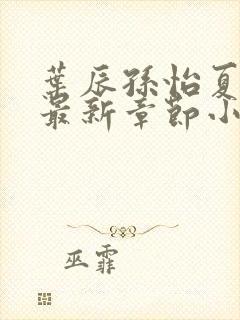 葉辰孫怡夏
最新章節小
巫霏